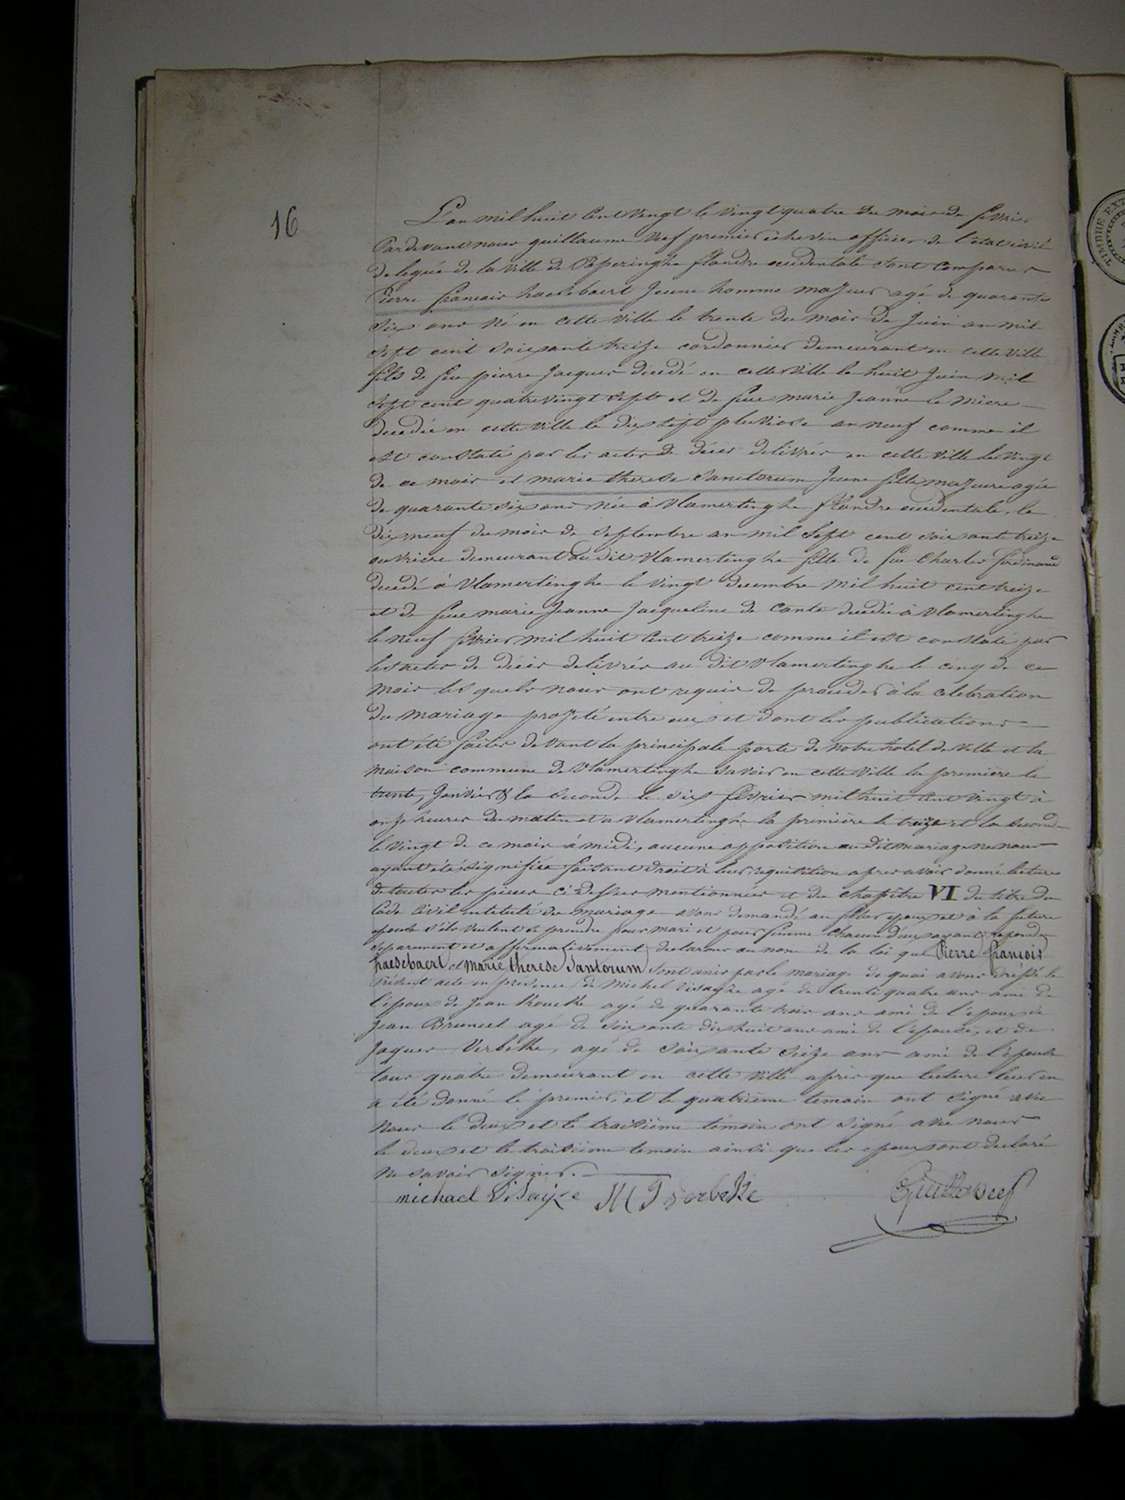 16
L'an mil huit cent vingt le vingt quatre du mois de fevrier
Pardevant nous guillaume Neef premier echevin officier de l'etat civil
deleguée de la ville de Poperinghe flandre occidentale sont comparus
Pierre francois haesebaert Jeune homme majeur agé de quarante
six ans né en cette ville le trente du mois de Juin an mil
sept cent soixante treize cordonnier demeurant en cette ville
fils de feu pierre Jacques decedé en cette ville le huit Juin mil
sept cent quatre vingt sept et de feue marie Jeanne le Miere
decedée en cette ville le dix sept pluviose an neuf comme il
est constaté par les actes de décès delivrés en cette ville le vingt
de ce mois et marie therese Sanctorum Jeune fille majeure agée
de quarante six ans née à Vlamertinghe flandre occidentale le
dix neuf du mois de septembre an mil sept cent soixante treize
ouvriere demeurant au dit Vlamertinghe fille de feu Charles ferdinand
decedé à Vlamertinghe le vingt decembre mil huit cent treize
et de feue marie Jeanne Jacqueline de Cante decedée à Vlamertinghe
le neuf fevrier mil huit cent treize comme il est constaté par
les actes de décès delivrés au dit Vlamertinghe le cinq de ce
mois les quels nous ont requis de proceder à la celebration
du mariage projeté entre eux et dont les publications
ont été faites devant la principale porte de notre hotel de ville et la
maison commune de Vlamertinghe savoir en cette ville la premiere le
trente Janvier & la seconde le six fevrier mil huit cent vingt à
onze heures du matin et a Vlamertinghe la premiere le treize et la seconde
le vingt de ce mois à midi, aucune opposition au dit mariage ne nous
ayant été signifiée faisant droit à leur requisition apres avoir donné lecture
de toutes les pieces ci dessus mentionnées et du chapitre VI du titre du
Code Civil intitulé du mariage avons demandé au futur epoux et à la future
epouse s'ils veulent se prendre pour mari et pour femme chacun d'eux ayant repondu
separement et affirmativement declarons au nom de la loi que Pierre francois
haesebaert et marie therese Santorum sont unis par le mariage de quoi avons dressé le
present acte en presence de Michel Visaghe agé de trente quatre ans ami de
l'epoux de Jean agé de quarante trois ans ami de l'epoux de
Jean Bruneel agé de soixante dix huit ans ami de l'epouse, et de
Jaques Verbeke, agé de soixante seize ans ami de l'épouse
tous quatre demeurant en cette ville après que lecture leur en
a été donné le premier, et le quatrieme temoin ont signé avec
nous le deux et le troisieme témoin ont signé avec nous
le deux et le troisieme temoin ainsi que les epoux ont declaré
ne savoir signer.
michael Visayze M J verbeke Guill Neef